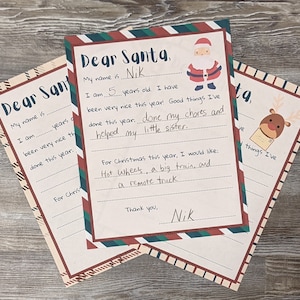 Dear Santa,
My name is Nik
I am 5 years old. I have
been very nice this year. Good things I've
done this year: done my chores and
helped my little sister.
For Christmas this year, I would like:
Hot Wheels, a big train, and
a remote truck
Thank you,
Nik
Dear San
My name is
I am years
been very nice th
done this year:
For Chris
ta,
I have
things I've